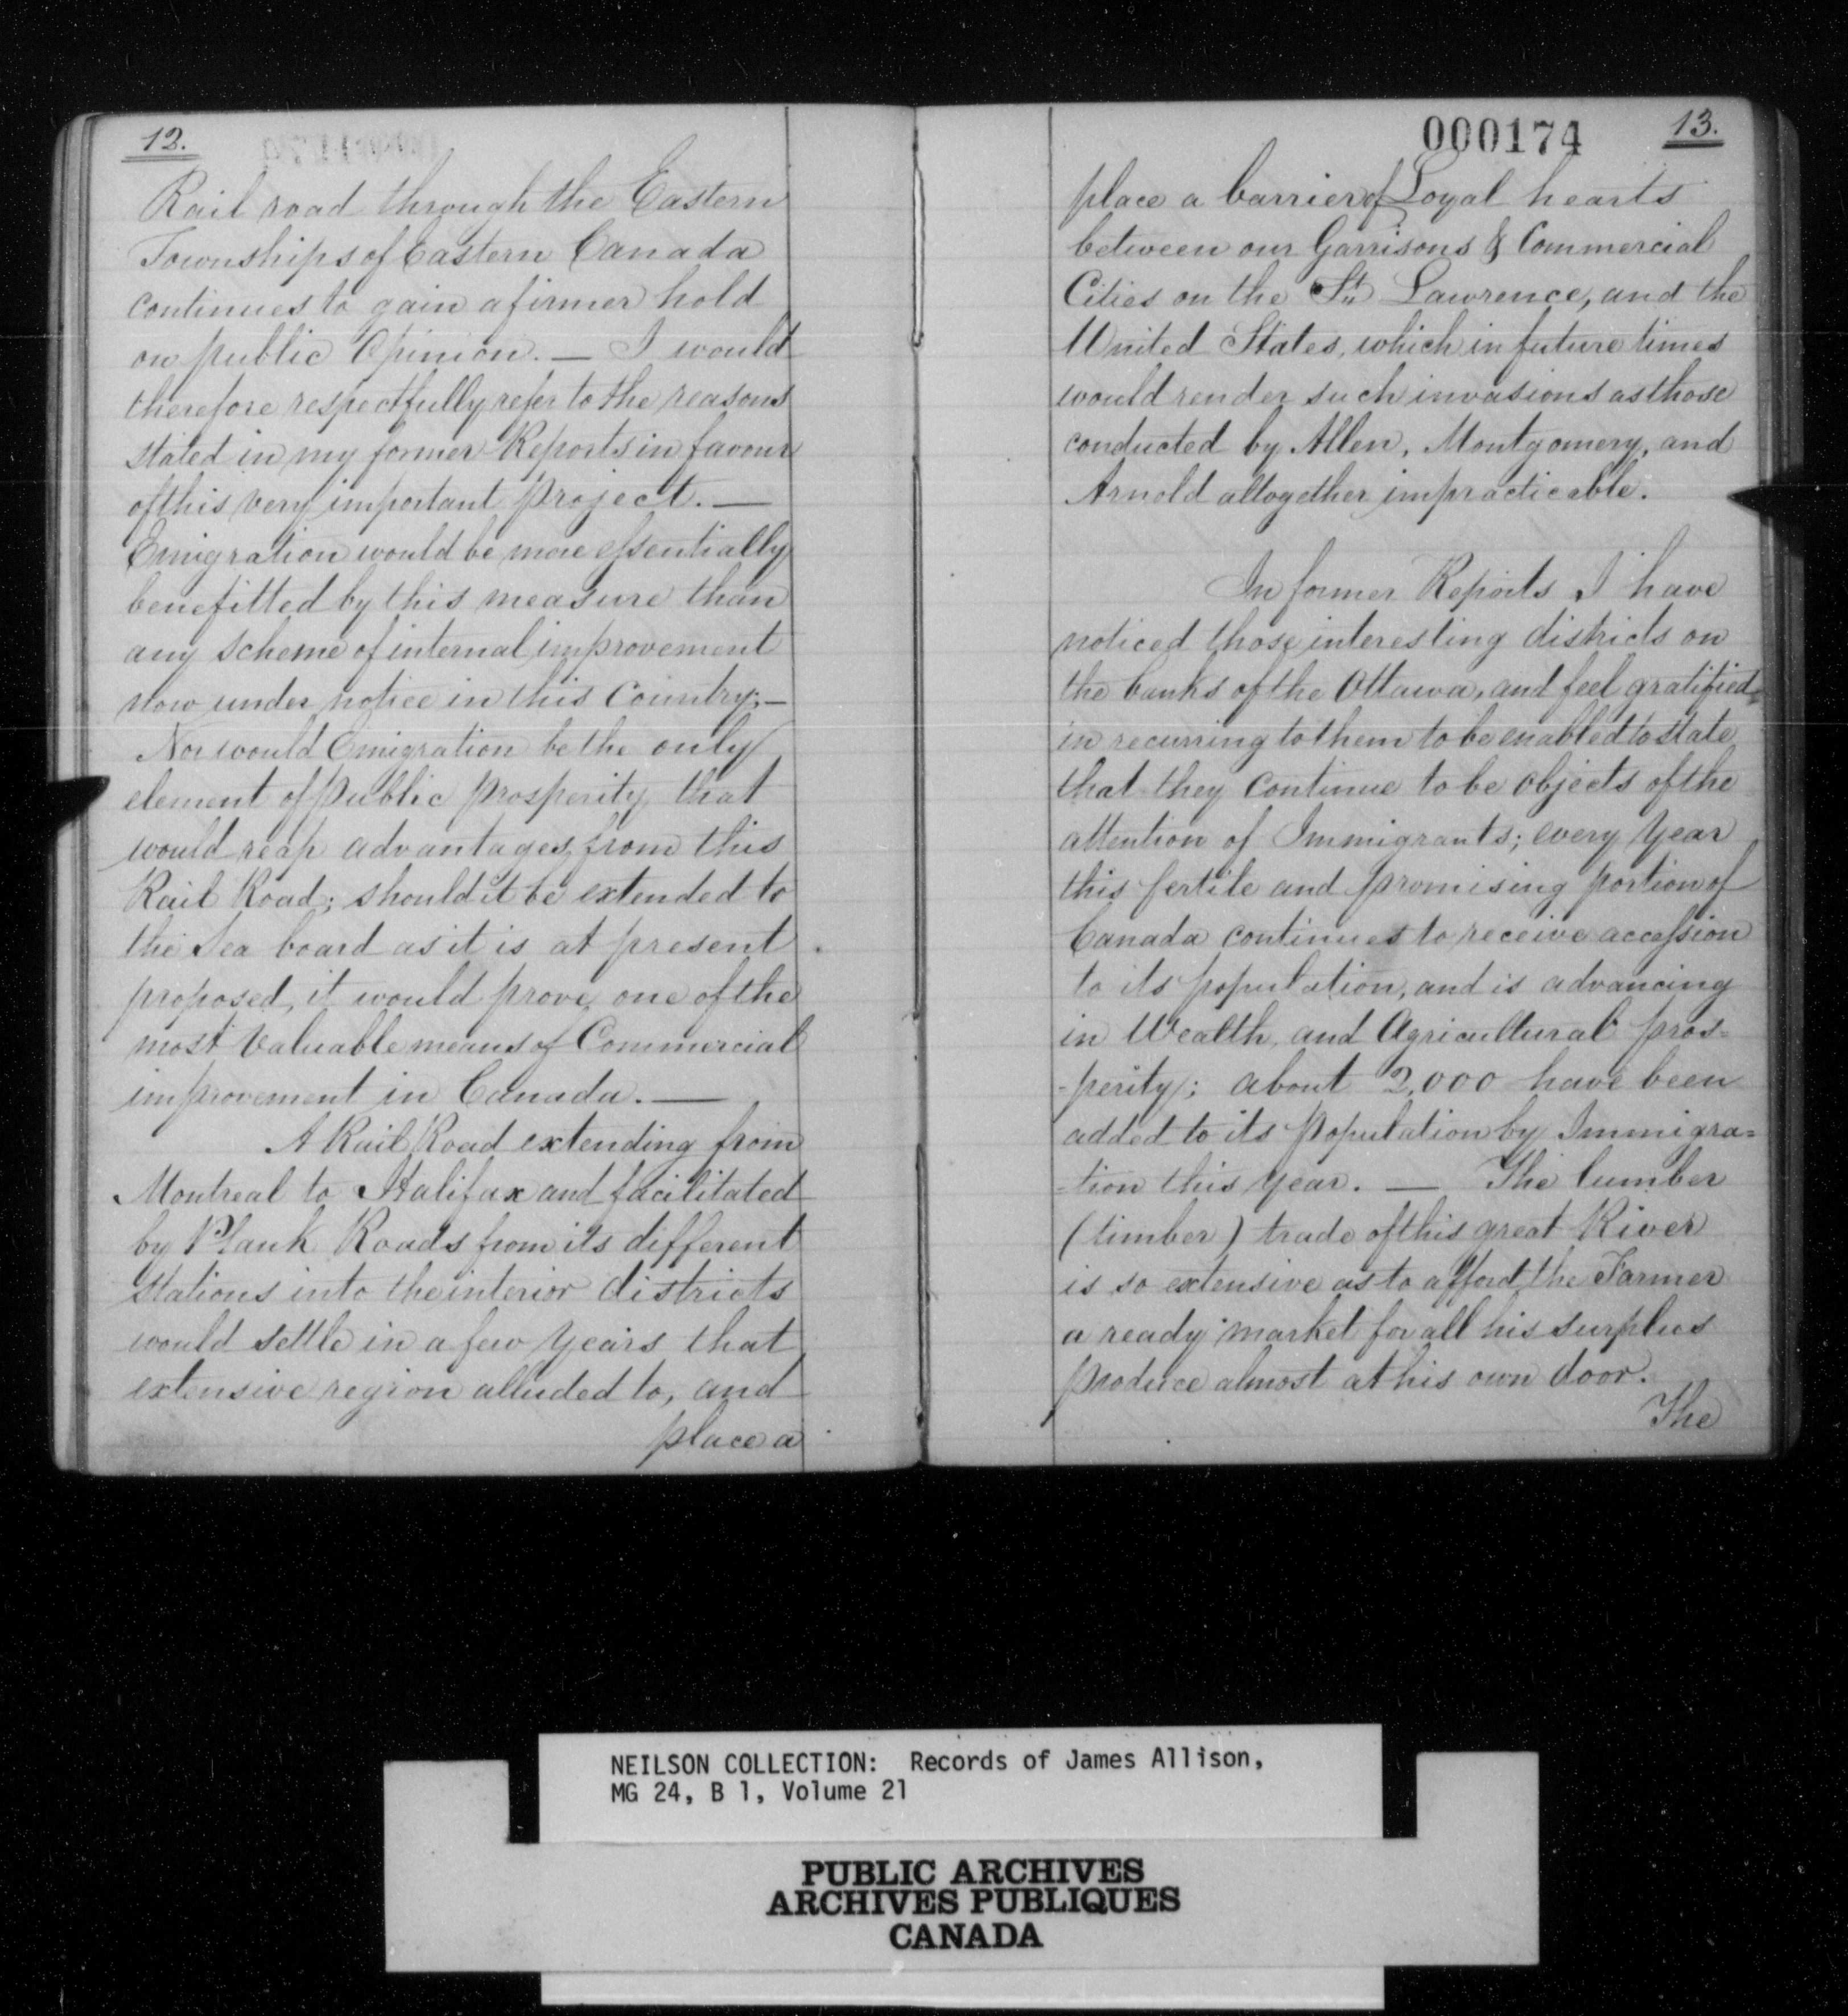 12.
Rail road through the Eastern
Townships of Eastern Canada
continues to gain a firmer hold
on public Opinion. — I would
therefore respectfully refer to the reasons
stated in my former Reports in favour
of this very important project. —
Emigration would be more essentially
benefitted by this measure than
any scheme of internal improvement
now under notice in this Country; —
Nor would Emigration be the only
element of public prosperity that
would reap advantages from this
Rail Road; should it be extended to
the Sea board as it is at present
proposed, it would prove one of the
most valuable means of Commercial
improvement in Canada. —
A Rail Road extending from
Montreal to Halifax and facilitated
by Plank Roads from its different
stations into the interior districts
would settle in a few years that
extensive region alluded to, and
place a
000174
13.
place a barrier of Loyal hearts
between our Garrisons & Commercial
Cities on the St. Lawrence, and the
United States, which in future times
would render such invasions as those
conducted by Allen, Montgomery, and
Arnold altogether impracticable.
In former Reports I have
noticed those interesting districts on
the banks of the Ottawa, and feel gratified
in recurring to them to be enabled to state
that they continue to be objects of the
attention of Immigrants; every year
this fertile and promising portion of
Canada continues to receive accession
to its population, and is advancing
in Wealth, and Agricultural pros=
=perity; about 2,000 have been
added to its population by Immigra=
=tion this year. — The lumber
(timber) trade of this great River
is so extensive as to afford the Farmer
a ready market for all his surplus
produce almost at his own door.
The
NEILSON COLLECTION: Records of James Allison,
MG 24, B 1, Volume 21
PUBLIC ARCHIVES
ARCHIVES PUBLIQUES
CANADA